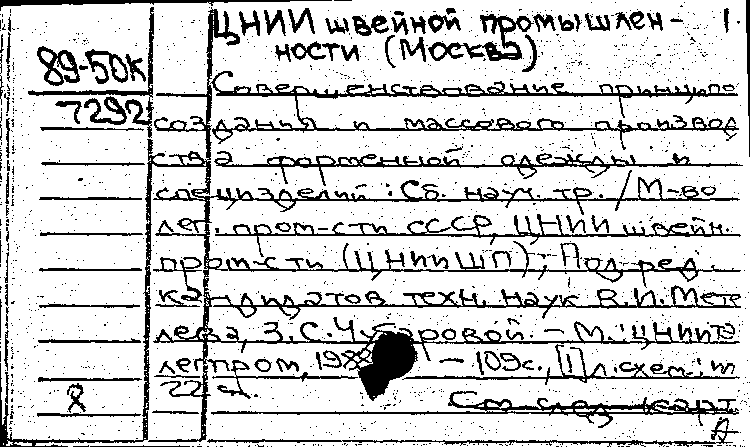 ЦНИИ швейной промышлен- 1
ности (Москва)
89-50К
7292
Совершенствование принципо
создания и массового производ
ства форменной одежды и
специзделий: Сб. науч. тр. / М-во
лег. пром-сти СССР, ЦНИИ швейн.
пром-сти (ЦНИИШП); Под ред.
кандидатов техн. наук В.И. Мете
лева, З.С. Чубаровой. – М.: ЦНИИТЭ
легпром, – 109с., [1] л. схем.;
22 см.
След карт